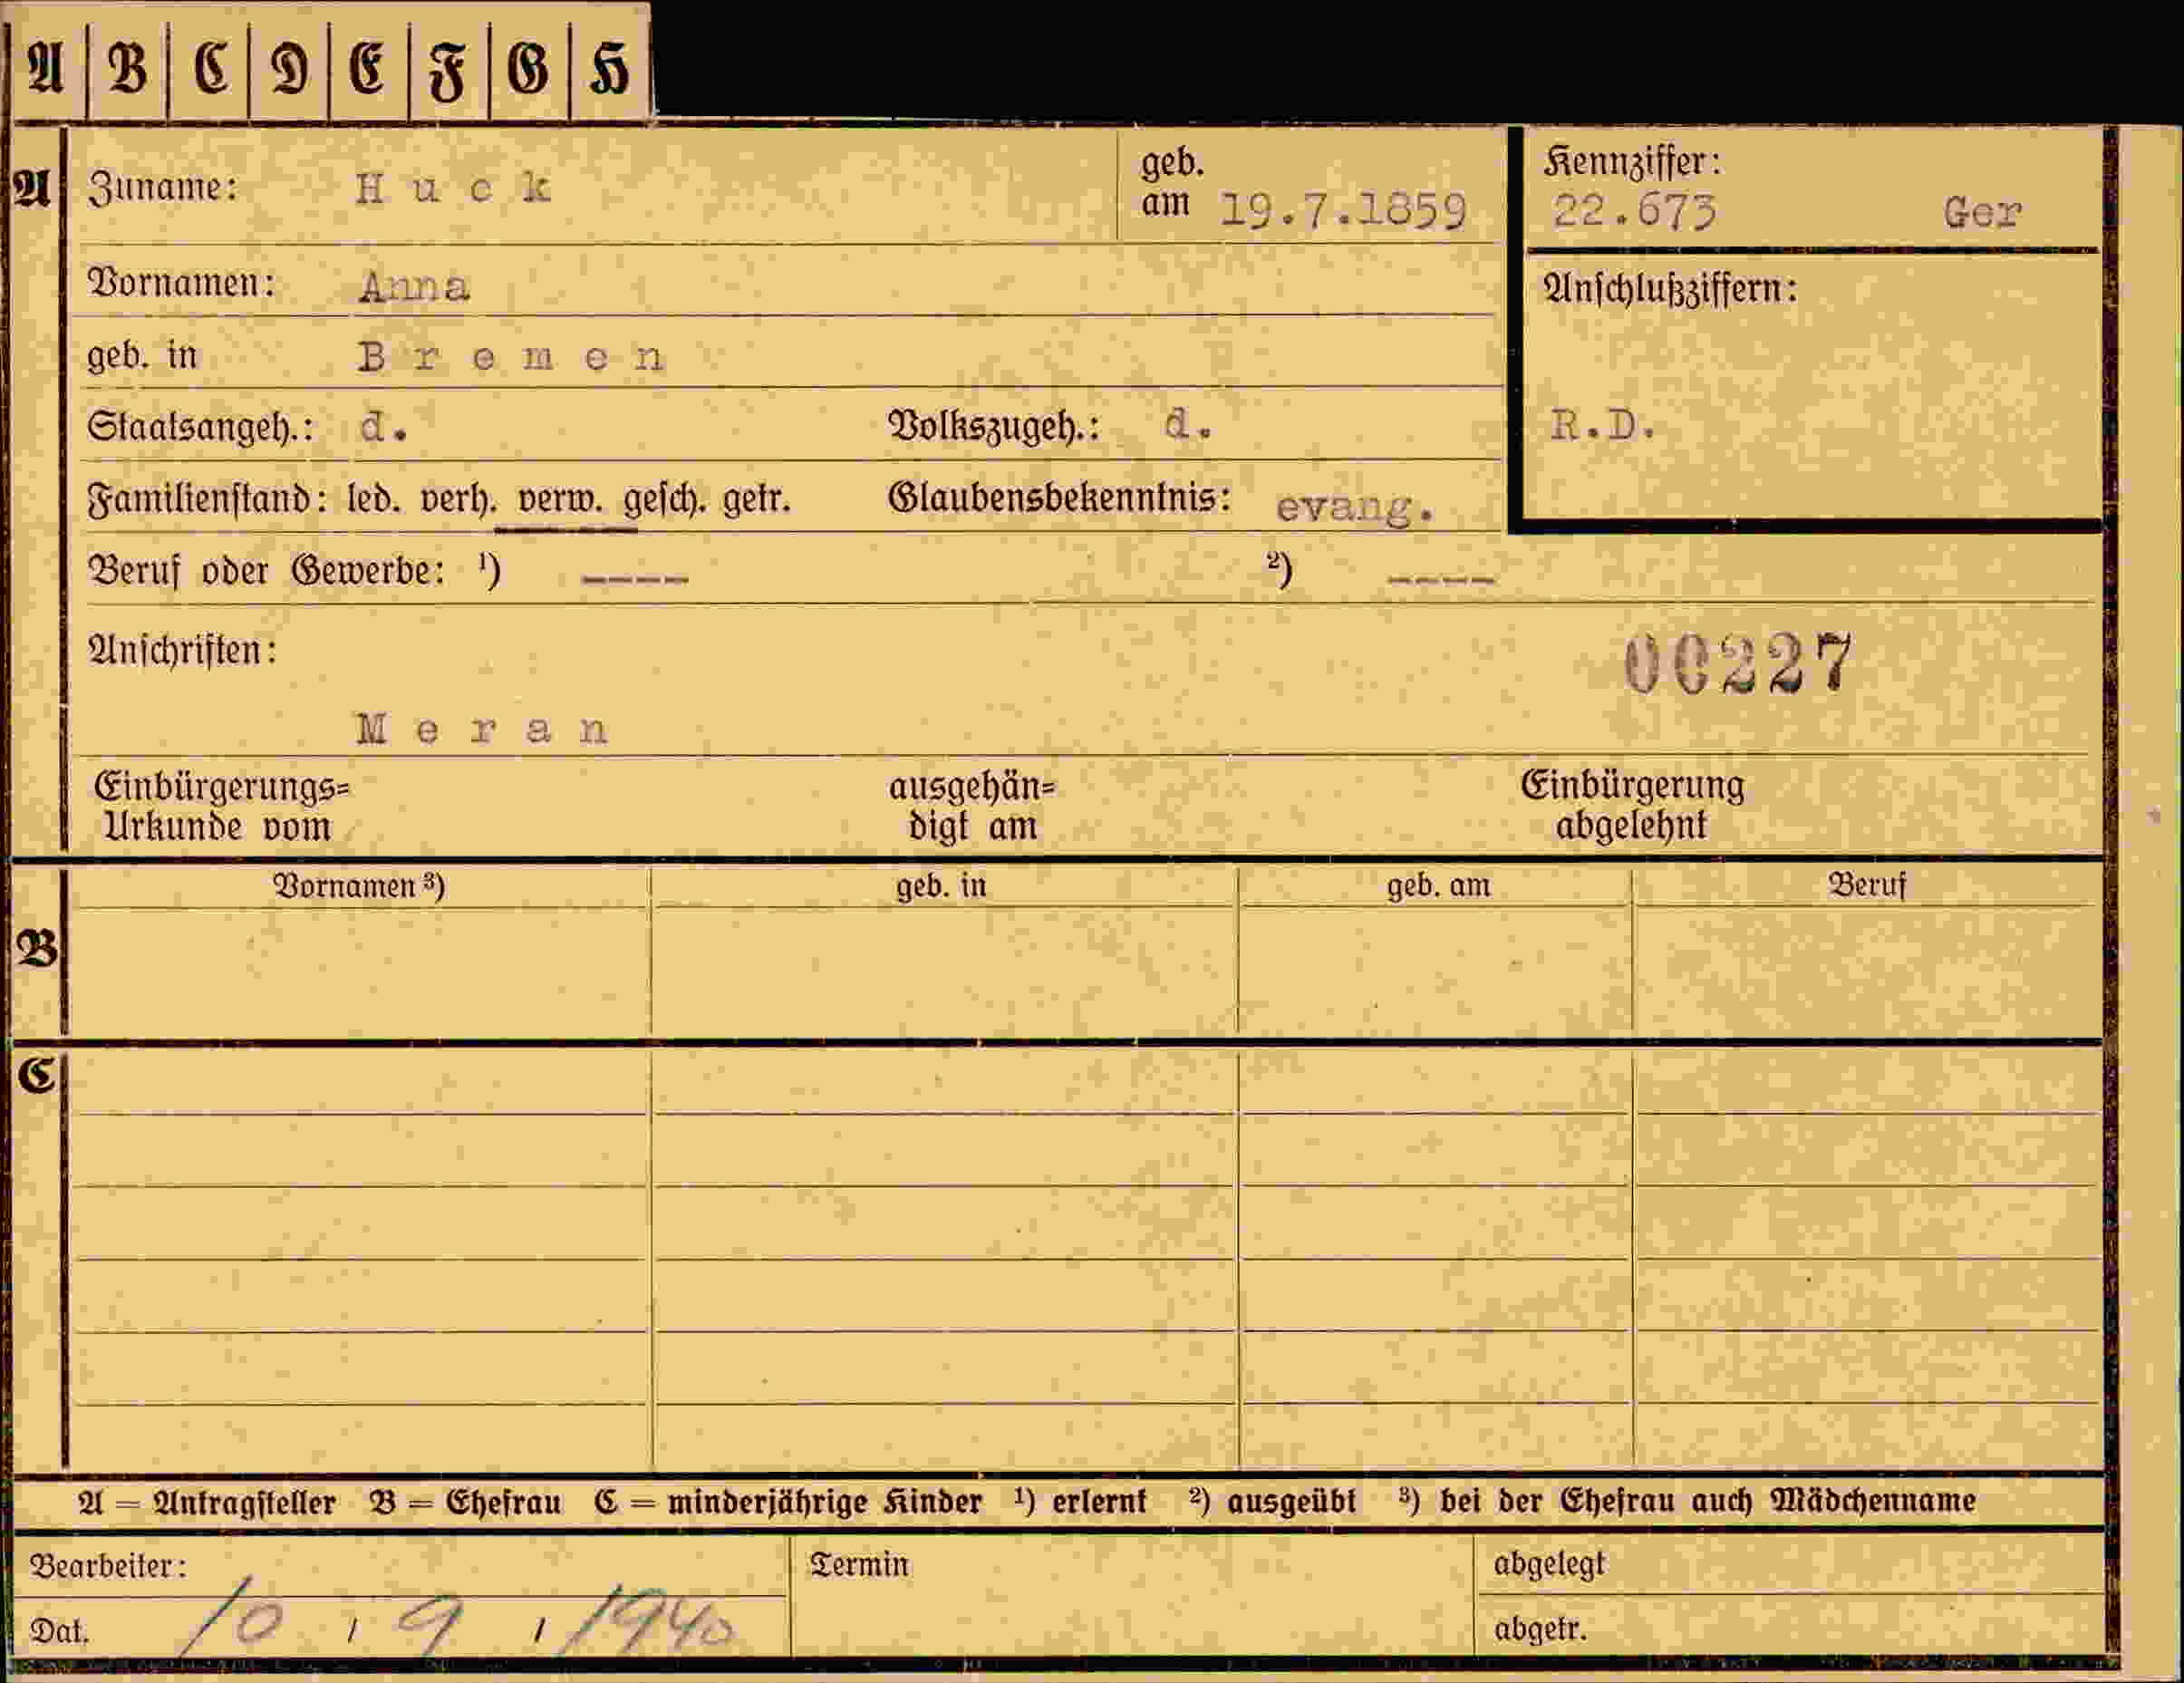 A B C D E F G H
A
Zuname: Huck
geb. am 19.7.1859
Kennziffer:
22.673 Ger
Vornamen: Anna
Anschlußziffern:
geb. in Bremen
Staatsangeh.: d. Volkszugeh.: d.
R.D.
Familienstand: led. verh. verw. gesch. getr. Glaubensbekenntnis: evang.
Beruf oder Gewerbe: ¹) ---- ²) ----
Anschriften:
00227
Meran
Einbürgerungs= ausgehän= Einbürgerung
Urkunde vom digt am abgelehnt
Vornamen ³) geb. in geb. am Beruf
B
C
A = Antragsteller B = Ehefrau C = minderjährige Kinder ¹) erlernt ²) ausgeübt ³) bei der Ehefrau auch Mädchenname
Bearbeiter: Termin abgelegt
Dat. 10 / 9 / 1940 abgetr.